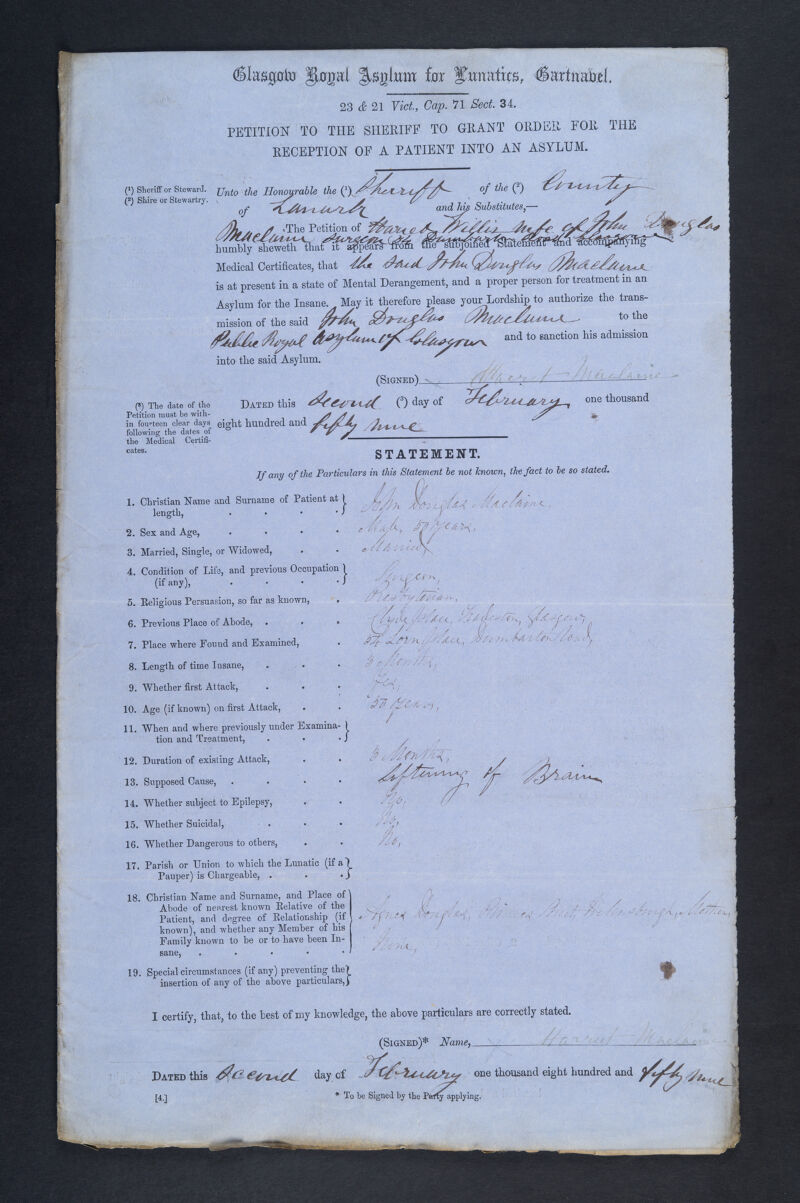 Glasgow Royal Asylum for Lunatics, Gartnabel.
23 & 21 Vict., Cap. 71 Sect. 34.
PETITION TO THE SHERIFF TO GRANT ORDER FOR THE
RECEPTION OF A PATIENT INTO AN ASYLUM.
(¹) Sheriff or Steward.
(²) Shire or Stewartry.
Unto the Honourable the (¹) Sherriff of the (²) County
of Lanark and his Substitutes,—
The Petition of Harriet Willis wife of John Douglas
Maclaine Surgeon 54 Dumbarton Road
humbly sheweth that it appears from the subjoined Statement and accompanying
Medical Certificates, that the said John Douglas Maclaine
is at present in a state of Mental Derangement, and a proper person for treatment in an
Asylum for the Insane. May it therefore please your Lordship to authorize the trans-
mission of the said John Douglas Maclaine to the
Public Royal Asylum of Glasgow and to sanction his admission
into the said Asylum.
(SIGNED) Harriet Maclaine
(³) The date of the
Petition must be with-
in fourteen clear days
following the dates of
the Medical Certifi-
cates.
DATED this Second (³) day of February one thousand
eight hundred and fifty nine
STATEMENT.
If any of the Particulars in this Statement be not known, the fact to be so stated.
1. Christian Name and Surname of Patient at length, John Douglas Maclaine
2. Sex and Age, Male, 50 years,
3. Married, Single, or Widowed, Married
4. Condition of Life, and previous Occupation (if any), Surgeon,
5. Religious Persuasion, so far as known, Presbyterian,
6. Previous Place of Abode, Clyde Place, Glasgow,
7. Place where Found and Examined, 54 Lorn Place, Dumbarton Road,
8. Length of time Insane, 3 Months,
9. Whether first Attack, Yes,
10. Age (if known) on first Attack, 50 years,
11. When and where previously under Examina-tion and Treatment,
12. Duration of existing Attack, 3 Months,
13. Supposed Cause, Softening of Brain
14. Whether subject to Epilepsy, No,
15. Whether Suicidal, No,
16. Whether Dangerous to others, No,
17. Parish or Union to which the Lunatic (if a
Pauper) is Chargeable,
18. Christian Name and Surname, and Place of
Abode of nearest known Relative of the
Patient, and degree of Relationship (if Agnes Douglas, Helensburgh, Mother
known), and whether any Member of his
Family known to be or to have been In- None,
sane,
19. Special circumstances (if any) preventing the
insertion of any of the above particulars,
I certify, that, to the best of my knowledge, the above particulars are correctly stated.
(SIGNED)* Name, Harriet Maclaine
DATED this Second day of February one thousand eight hundred and fifty nine
[4.]
* To be Signed by the Party applying.